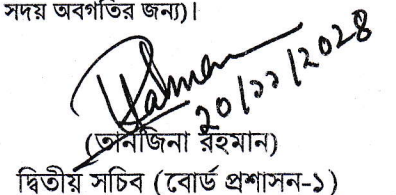 সদয় অবগতির জন্য)।
২০/১১/২০২৪
(তানজিনা রহমান)
দ্বিতীয় সচিব (বোর্ড প্রশাসন-১)